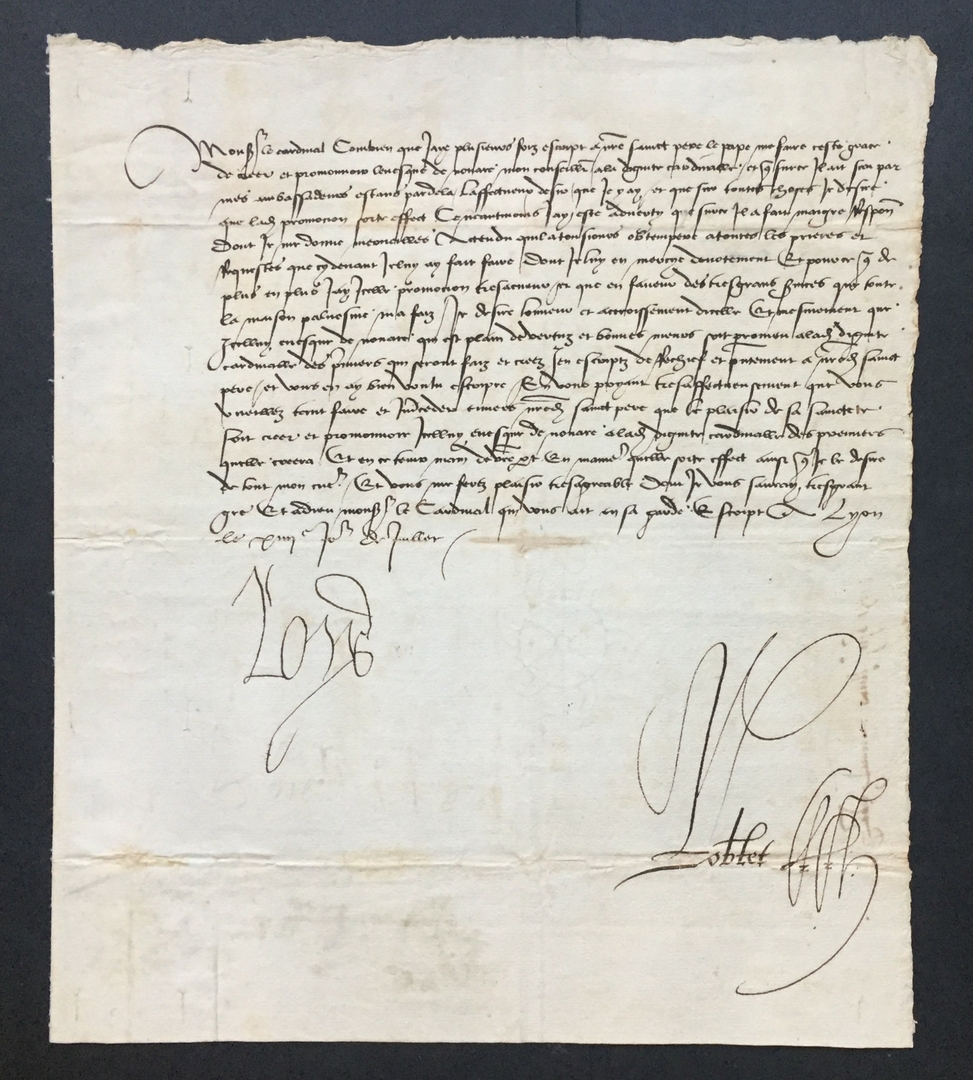 Monsr le cardinal Combien que Jaye plusieurs foiz escript a nre sainct pere le pape me faire ceste grace
de creer et promouvoir levesque de novare mon conseiller ala dignite cardinalle et q surce Il ait sceu par
mes ambassadeurs estans pardela Laffectueux desir que Je y ay et que sur toutes choses Je desire
que lad promocion sorte effect Ce neantmoins Jay este adverty que surce Il a fait maigre Respon
Dont Je me donne merveilles Actendu quil a tousiours obtempere a toutes les prieres et
Requestes que cydevant Icelluy ay fait faire Dont Je luy en mercye devotement Et pource q de
plus en plus Jay Icelle promocion tresacueur et que en faveur des tresgrans services que toute
la maison palvesine ma faiz Je desire lonneur et accroissement dicelle Et mesmement que
Icelluy evesque de novare qui est plain de vertuz et bonnes meurs soit promeu alad dignite
cardinalle des premiers qui seront faiz et creez Jen escriptz de Rechief et pntement a nred sainct
pere et vous en ay bien voulu escripre En vous priant tresaffectueusement que vous
vueillez tenir faire et Interceder envers nred sainct pere que le plaisir de sa sainctete
soit creer et promouvoir Icelluy evesque de novare alad dignite cardinalle des premiers
quelle creera Et en ce tenir main de vre part En maniere quelle sorte effect ainsi q Je le desire
de tout mon cueur Et vous me ferez plaisir tresagreable Dont Je vous sauray tresgrant
gre Et adieu monsr le Cardinal qui vous ait en sa garde Escript A Lyon
le xiiiie Jor de Juillet
Loys
Robertet